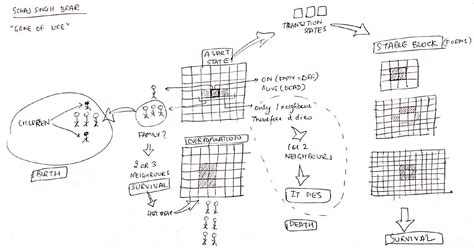 SURAJ SINGH BRAR
"GAME OF LIFE"
A START
STATE
TRANSITION
STATES
STABLE BLOCK (FORMS)
ON (EMPTY = OFF)
ALIVE (DEAD)
only 1 neighbour
Therefore it dies
CHILDREN
BIRTH
FAMILY?
2 OR 3
NEIGHBOURS
SURVIVAL
OVERPOPULATION
1 or 2
NEIGHBOURS
IT DIES
DEATH
SURVIVAL